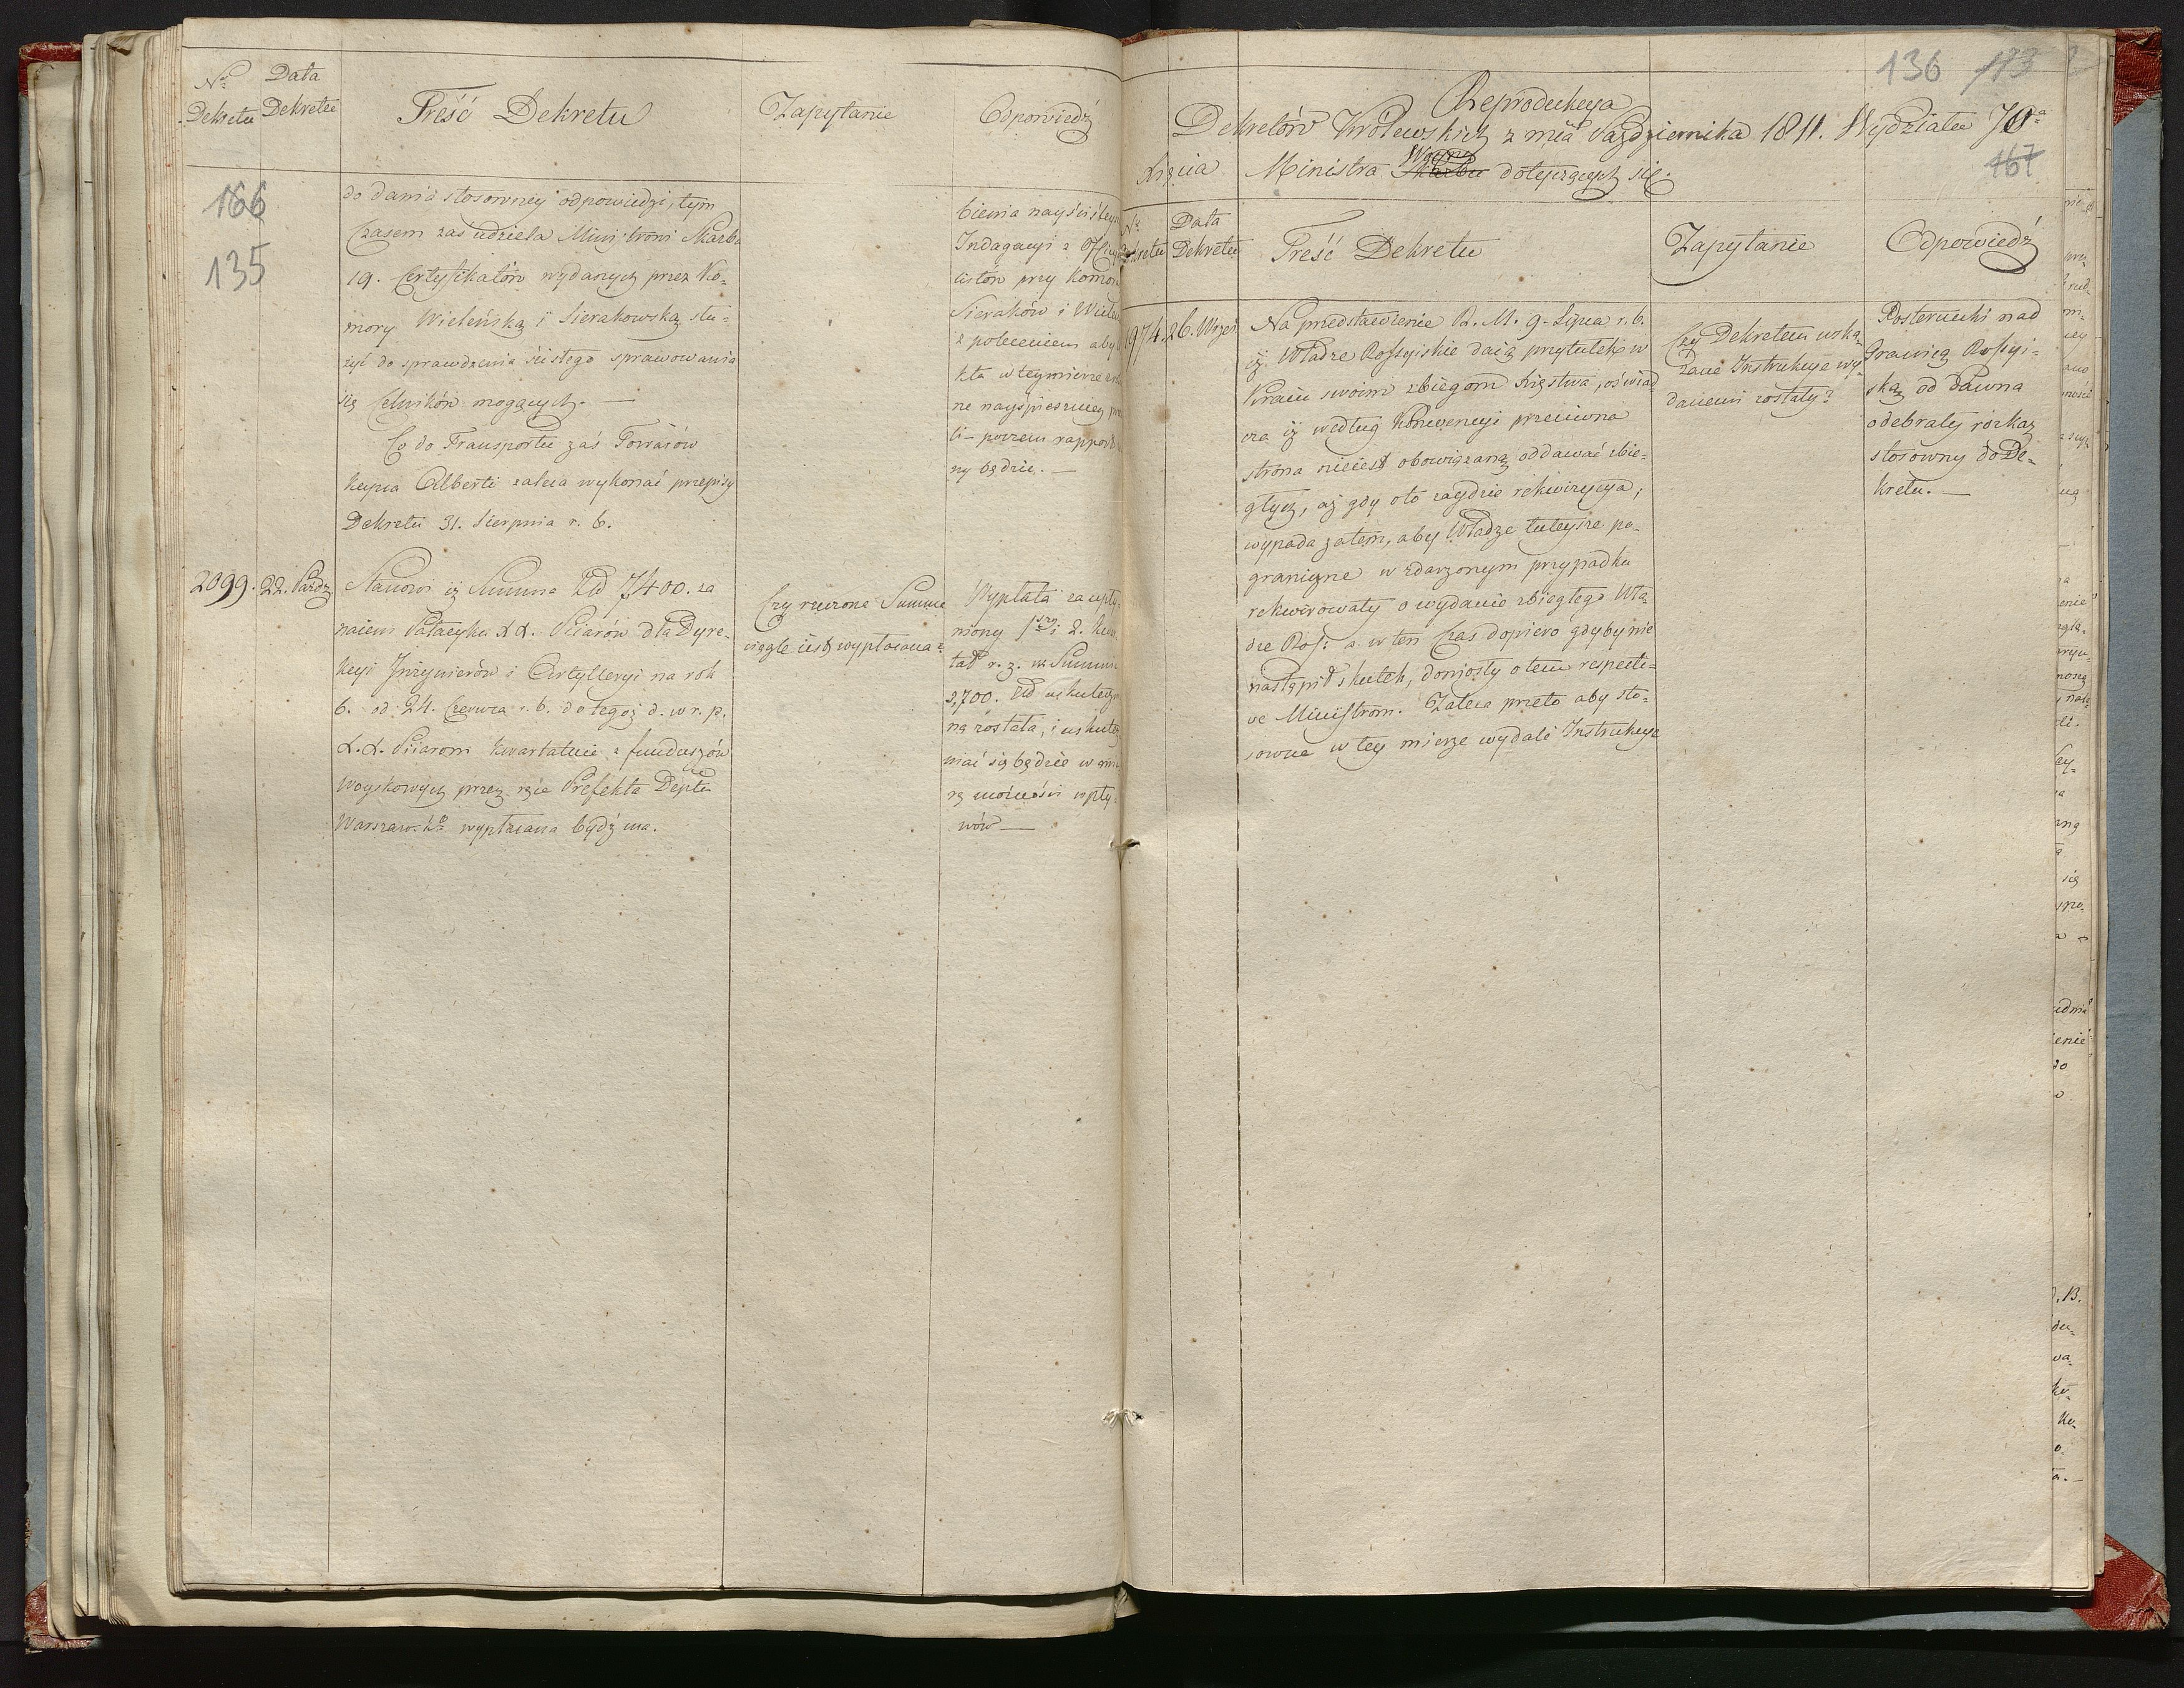 Nro Dekretu
Data Dekretu
Treść Dekretu
Zapytanie
Odpowiedź
166
135
do dania stosowney odpowiedzi, tym
Czasem zaś udziela Ministrowi Skarbu
19. Certyfikatów wydanych przez Ko=
mory Wieleńską i Sierakowską słu=
żyć do sprawdzenia ścisłego sprawowania
się Celników mogących. —
Co do Transportu zaś Towarów
kupca Alberti zaleca wykonać przepisy
Dekretu 31. Sierpnia r. b.
bienia nayściśley
Indagacyi z Offic
listów przy komor
Sieraków i Wiele
z poleceniem aby
kta w teymierze
ne nayspieszniey
li – poczem rapport
ny będzie. —
2099.
22. Paźdz
Stanowi iż Summa Złł 7400. za
naiem Pałacyku XX. Piiarów dla Dyre=
kcyi Inżynierów i Artylleryi na rok
b. od 24. Czerwca r. b. do tegoż d. w r. p.
X.X. Piiarom kwartalnie z funduszów
Woyskowych przez ręce Prefekta Deptu
Warszaws-ko wypłacana bydź ma.
Czy rzeczona Summa
ciągle iest wypłacana?
Wypłata za upły=
niony 1szy i 2. kwar
tał r. z. w Summie
3,700. Złł uskutecz
ną została, i uskutecz
niać się będzie w mia
rę możności wpły=
wów —
136 173
167
Reprodukcya
Dekretów Królewskich z mca Października 1811. Wydziału JO
Xięcia Ministra Skarbu Woyny dotyczących się.
Nr Dekretu
Data Dekretu
Treść Dekretu
Zapytanie
Odpowiedź
1974.
26. Wrześ
Na przedstawienie R. M. 9. Lipca r. b.
iż Władze Rossyiskie daią przytułek w
Kraiu swoim zbiegom Xięstwa, oświad
cza iż według Konwencyi przeciwna
strona nieiest obowiązaną oddawać zbie=
głych, aż gdy oto zaydzie rekwizycya;
wypada zatem, aby Władze tuteysze po=
graniczne w zdarzonym przypadku
rekwirowały o wydanie zbiegłego Wła
dze Ros: a w ten Czas dopiero gdyby nie
nastąpił skutek, doniosły o tem respecti=
ve Ministrom. Zaleca przeto aby sto=
sowne w tey mierze wydali Instrukcye
Czy Dekretem wska=
zane Instrukcye wy=
danemi zostały?
Posterunki nad
Granicą Rossyi=
ską od dawna
odebrały rozkaz
stosowny do De=
kretu. —